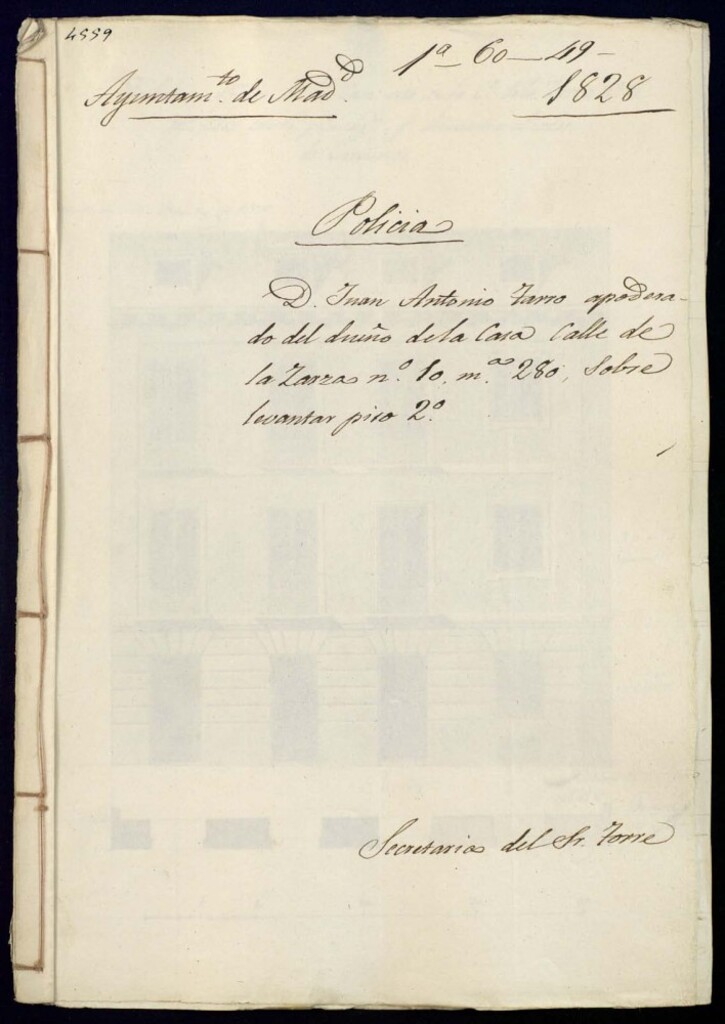 4559
1ª 60—49-
Ayuntamto. de Madd.
1828
Policia
D. Juan Antonio Tarro apodera-
do del dueño dela Casa Calle de
la Zarza n.º 10, m.ª 280, Sobre
levantar piso 2.º
Secretaria del Sr. Torre